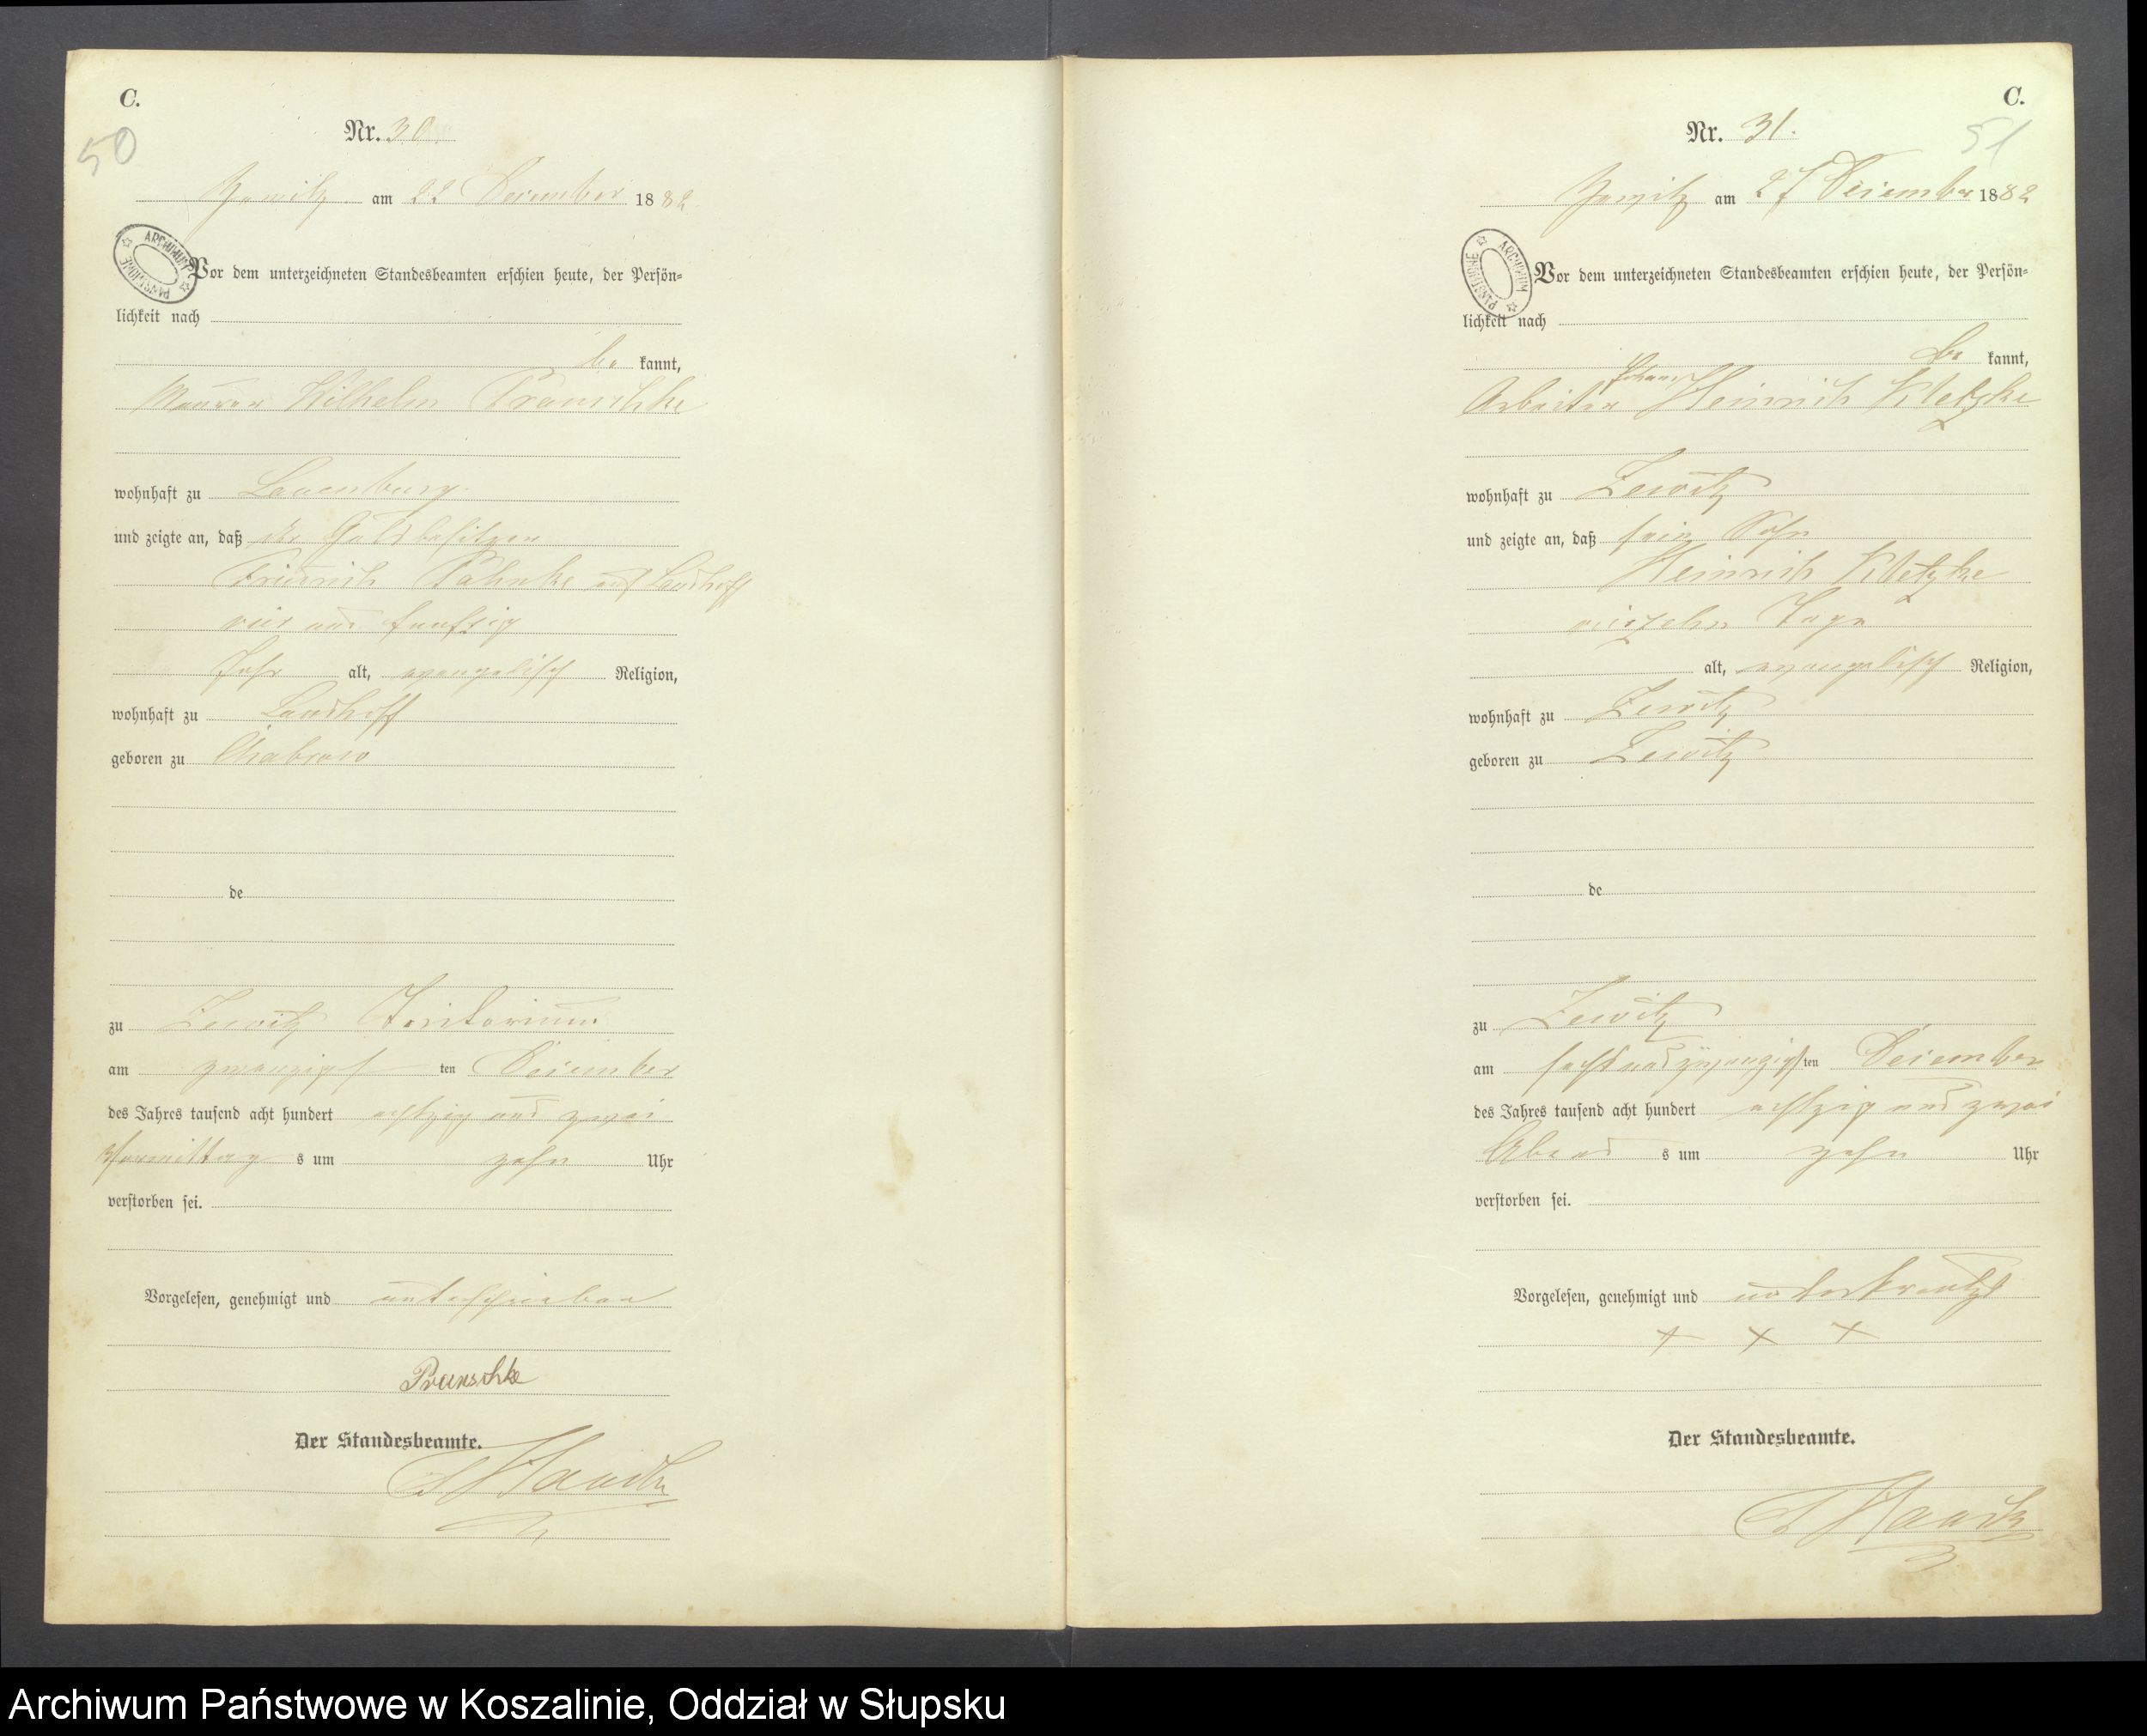 C.
50
Nr. 30
Zewitz am 22 December 1882
ARCHIWUM PAŃSTWOWE
Vor dem unterzeichneten Standesbeamten erschien heute, der Persön-
lichkeit nach
be kannt,
Maurer Wilhelm
wohnhaft zu Lauenburg
und zeigte an, daß der
Friedrich Pahnke aus Landhoff
vier und funfzig
Jahr alt, evangelisch Religion,
wohnhaft zu Landhoff
geboren zu Chabrow
de
zu Zewitz Territorium
am zwanzigst ten December
des Jahres tausend acht hundert achtzig und zwei
Vormittag s um zehn Uhr
verstorben sei.
Vorgelesen, genehmigt und unterschrieben
Prauschke
Der Standesbeamte.
C.
51
Nr. 31.
Zewitz am 27 December 1882
ARCHIWUM PAŃSTWOWE
Vor dem unterzeichneten Standesbeamten erschien heute, der Persön-
lichkeit nach
be kannt,
Johann
Arbeiter Heinrich Kletzke
wohnhaft zu Zewitz
und zeigte an, daß sein Sohn
Heinrich Kletzke
vierzehn Tage
alt, evangelisch Religion,
wohnhaft zu Zewitz
geboren zu Zewitz
de
zu Zewitz
am sechsundzwanzigsten December
des Jahres tausend acht hundert achtzig und zwei
Abend s um zehn Uhr
verstorben sei.
Vorgelesen, genehmigt und unterkreutzt
+ + +
Der Standesbeamte.
Archiwum Państwowe w Koszalinie, Oddział w Słupsku